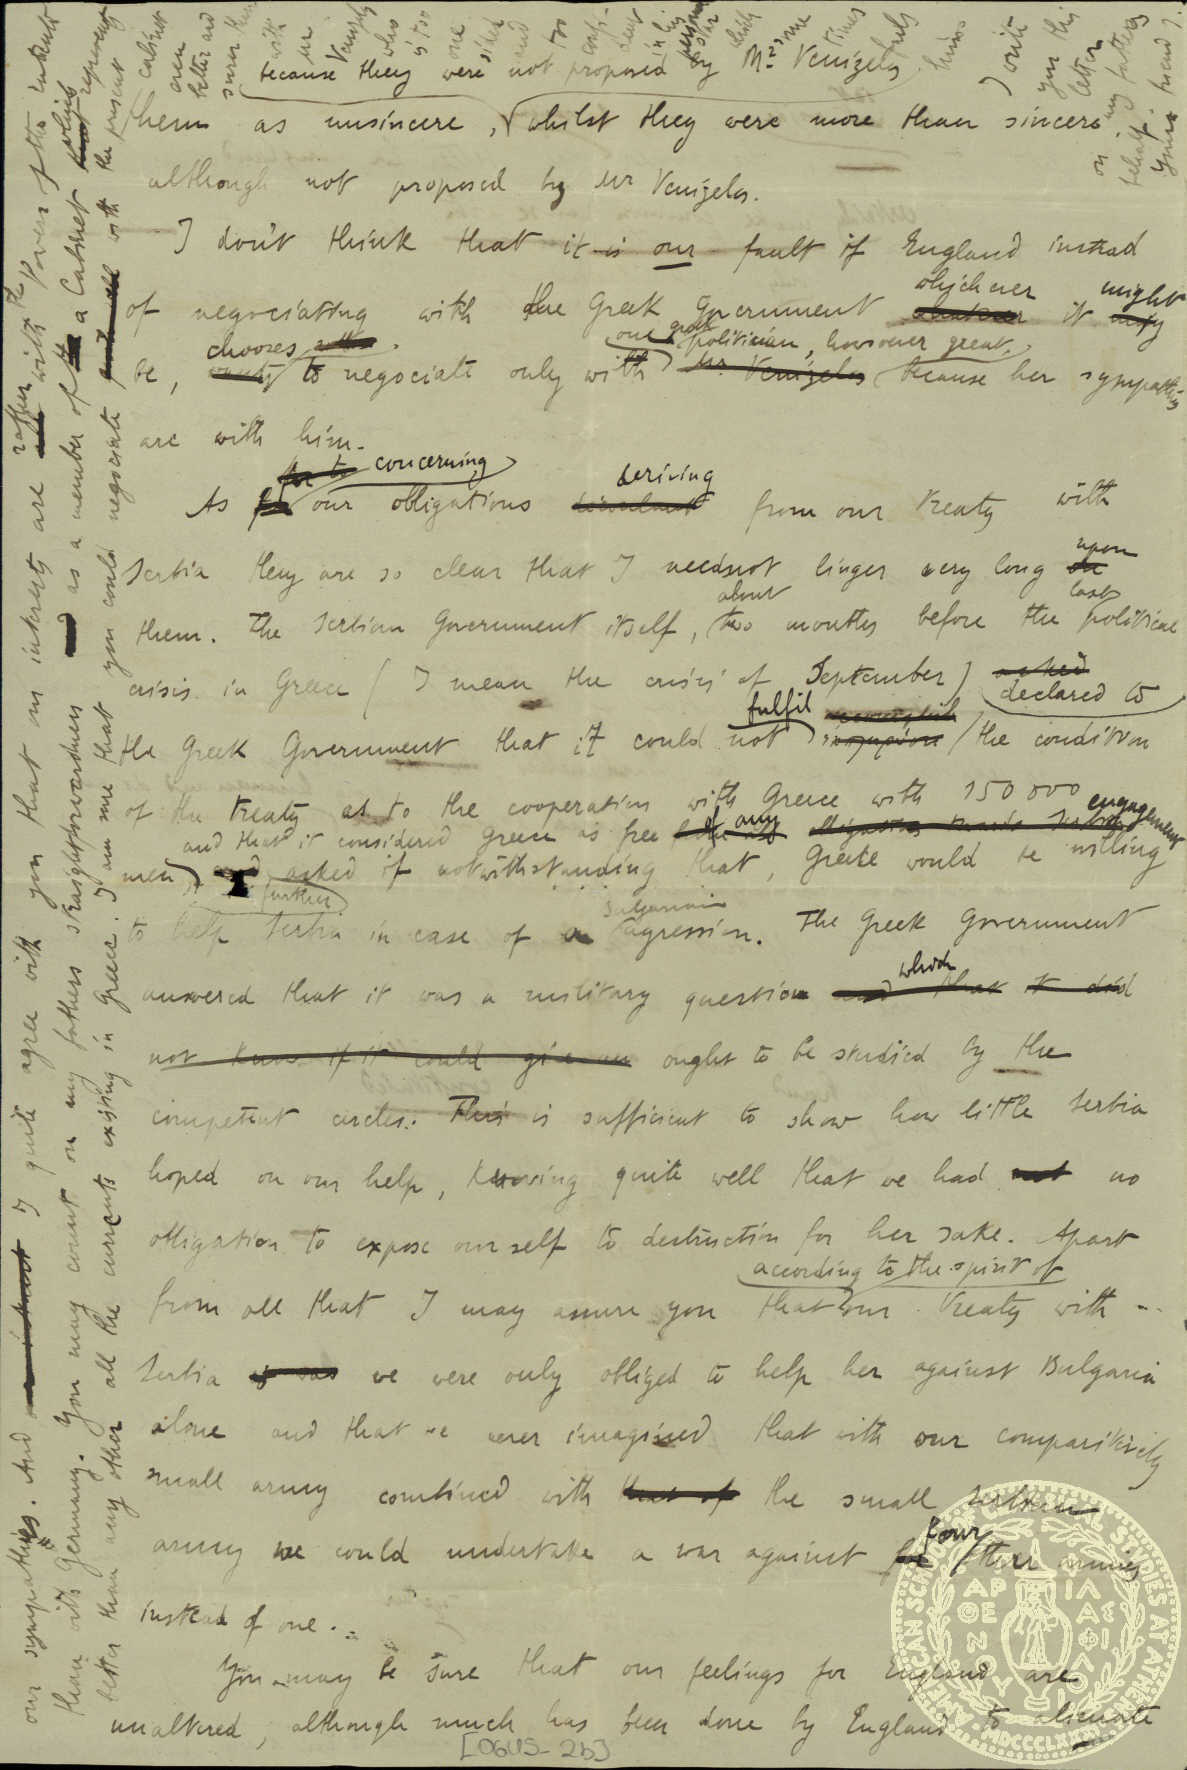 because they were not proposed by Mr Venizelos.
them as unsincere, whilst they were more than sincere
although not proposed by Mr Venizelos.
I don't think that it is our fault if England instead
whichever might
of negociating with the Greek Government it
chooses one great politician, howsoever great,
be, to negociate only with Mr. Venizelos because her sympathies
are with him.
for to concerning deriving
As our obligations from our treaty with
upon
Serbia they are so clear that I need not linger very long
about last
them. The Serbian Government itself, two months before the political
crisis in Greece (I mean the crisis of September) asked
declared to
fulfil
the Greek Government that it could not the condition
of the treaty as to the cooperation with Greece with 150 000
and that it considered Greece as free of any engagement
men asked if notwithstanding that, Greece would be willing
further
Bulgarian
to help Serbia in case of a agression. The Greek Government
which
answered that it was a military question and that it did
not know if it could give an ought to be studied by the
competent circles. This is sufficient to show how little Serbia
hoped on our help, knowing quite well that we had not no
obligation to expose ourself to destruction for her sake. Apart
according to the spirit of
from all that I may assure you that our treaty with
Serbia we were only obliged to help her against Bulgaria
alone and that we never imagined that with our comparitively
small army combined with that of the small Serbian
four
army we could undertake a war against other armies
instead of one.
You may be sure that our feelings for England are
unaltered, although much has been done by England to alienate
[0605-2b]
our sympathies. And I quite agree with you that our interests are rather with the Powers of the Entente
than with Germany. You may count on my fathers straightforwardness as a member of a Cabinet
better than any other all the currents existing in Greece. I am sure that you could negociate with the present
cabinet even better and
with Mr Venizelos who is too one sided and too
I write you this letter on my fathers behalf.
Yours friend
AMERICAN SCHOOL OF CLASSICAL STUDIES AT ATHENS
MDCCCLXXXI
ΠΑΡΘΕΝΟΥ ΦΙΛΑΣ ΦΙΛΟΙ